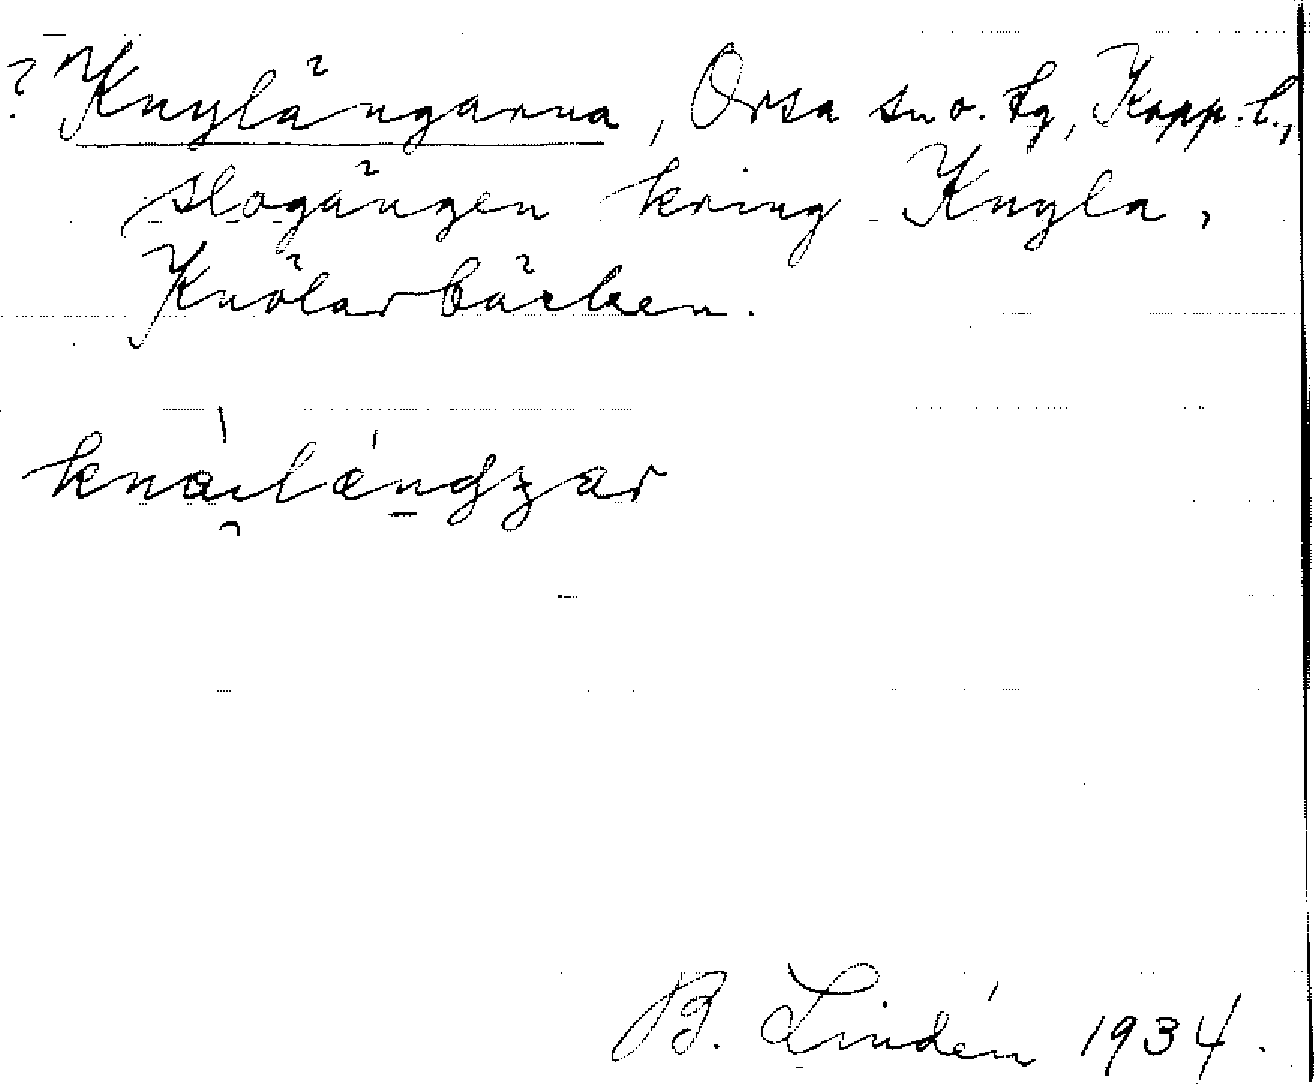 ? Knylängarna, Orsa sn o. tg, Kopp. l.,
slogängen kring Knyla,
Knölarbäcken.
B. Lindén 1934.